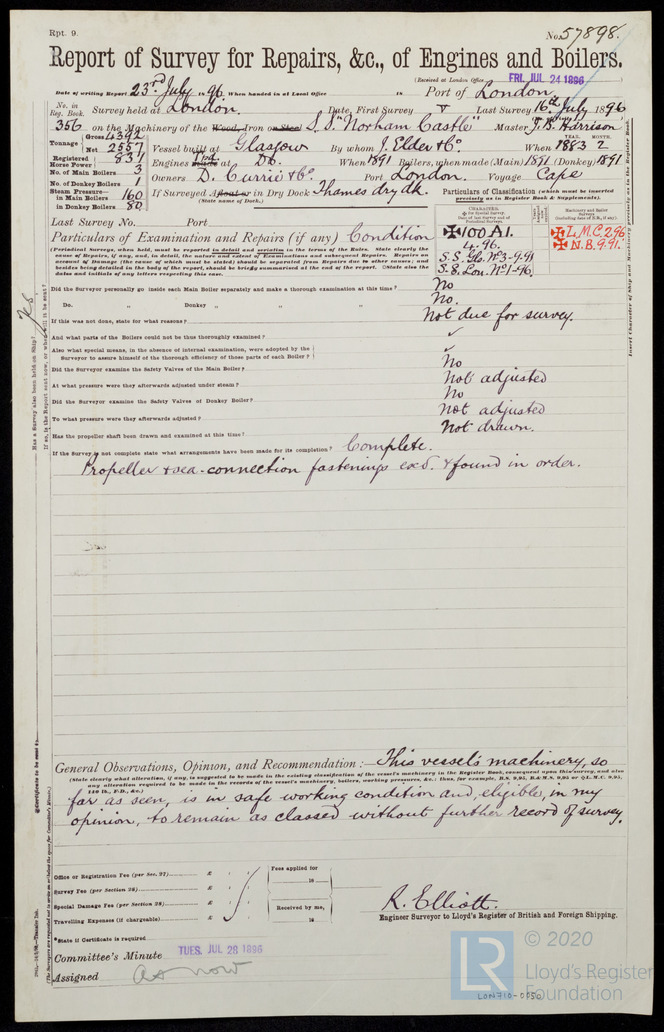 Rpt. 9.
No. 57898.
Report of Survey for Repairs, &c., of Engines and Boilers.
(Received at London Office FRI. JUL 24 1896 )
Date of writing Report 23rd July 96. When handed in at Local Office 18 Port of London
No. in Reg. Book. Survey held at London. Date, First Survey Last Survey 16th July 1896
356 on the Machinery of the Wood, Iron or Steel S.S. "Norham Castle" Master J. B. Harrison
Tonnage Gross 4392
Net 2557 Vessel built at Glasgow By whom J. Elder & Co. When 1883 2
YEAR. MONTH.
Registered Horse Power 837 Engines at Do. When 1891 Boilers, when made (Main) 1891 (Donkey) 1891
No. of Main Boilers 3
No. of Donkey Boilers 1 Owners D. Currie & Co. Port London. Voyage Cape
Steam Pressure in Main Boilers 160 If Surveyed Afloat or in Dry Dock Thames dry dk.
(State name of Dock.)
in Donkey Boilers 80
Particulars of Classification (which must be inserted precisely as in Register Book & Supplements).
Last Survey No. Port
CHARACTERS.
Machinery and Boiler Surveys
✠100A1. ✠L.M.C. 2.96
4.96. ✠N.B. 9.91.
S.S. Glo. No3-9.91
S.S. Lon. No1-96
Particulars of Examination and Repairs (if any) Condition
(Periodical Surveys, when held, must be reported in detail and seriatim in the terms of the Rules. State clearly the cause of Repairs, if any, and, in detail, the nature and extent of Examinations and subsequent Repairs. Repairs on account of Damage (the cause of which must be stated) should be separated from Repairs due to other causes; and besides being detailed in the body of the report, should be briefly summarised at the end of the report. State also the dates and initials of any letters respecting this case.
Did the Surveyor personally go inside each Main Boiler separately and make a thorough examination at this time? No
Do. " Donkey " " " No.
If this was not done, state for what reasons? Not due for survey.
And what parts of the Boilers could not be thoroughly examined? ✓
Also what special means, in the absence of internal examination, were adopted by the Surveyor to assure himself of the thorough efficiency of those parts of each Boiler? ✓
Did the Surveyor examine the Safety Valves of the Main Boiler? No
At what pressure were they afterwards adjusted under steam? Not adjusted
Did the Surveyor examine the Safety Valves of Donkey Boiler? No
To what pressure were they afterwards adjusted? Not adjusted
Has the propeller shaft been drawn and examined at this time? Not drawn.
If the Survey is not complete state what arrangements have been made for its completion? Complete.
Propeller & sea-connection fastenings exd. & found in order.
General Observations, Opinion, and Recommendation:— This vessel's machinery, so
(State clearly what alteration, if any, is suggested to be made in the existing classification of the vessel's machinery in the Register Book, consequent upon this survey, and also any alteration required to be made in the records of the vessel's machinery, boilers, working pressures, &c.: thus, for example, B.S. 9,95, B.&M.S. 9,95 or L.M.C. 9,95, 160 lb., F.D., &c.)
far as seen, is in safe working condition and, eligible, in my
opinion, to remain as classed without further record of survey.
Office or Registration Fee (per Sec. 27) £ Fees applied for
Survey Fee (per Section 28) £ 18
Special Damage Fee (per Section 28) £ Received by me,
Travelling Expenses (if chargeable) £ 18
R. Elliott.
Engineer Surveyor to Lloyd's Register of British and Foreign Shipping.
*State if Certificate is required
Committee's Minute TUES. JUL 28 1896
Assigned as now
Has a Survey also been held on Ship? Yes
If so, is the Report sent now, or when will it be sent?
Insert Character of Ship and Machinery precisely as in the Register Book
LR © 2020
Lloyd's Register
Foundation
LON710-0050